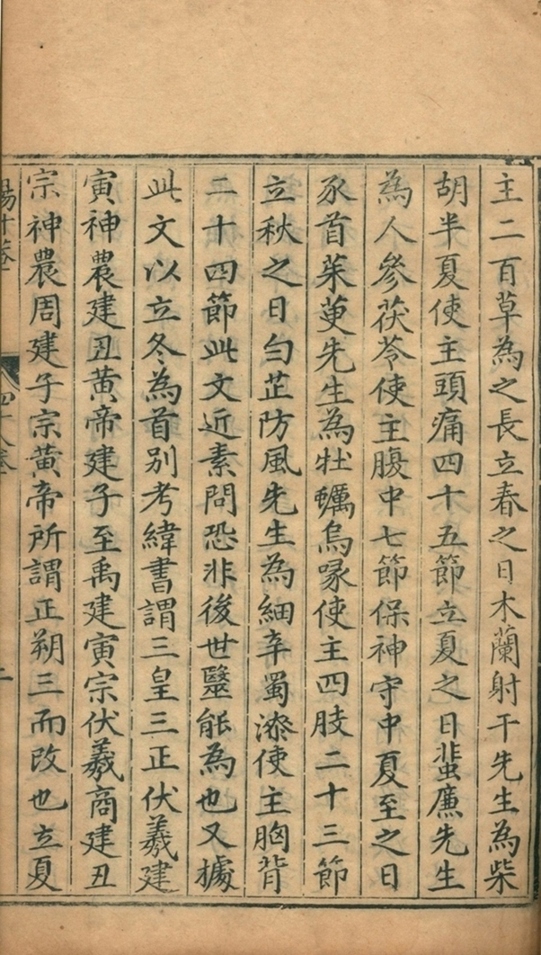 主二百草為之長立春之日木蘭射干先生為柴
胡半夏使主頭痛四十五節立夏之日蜚廉先生
為人參茯苓使主腹中七節保神守中夏至之日
豕首茱萸先生為牡蠣烏喙使主四肢二十三節
立秋之日白芷防風先生為細辛蜀漆使主胸背
二十四節此文近素問恐非後世毉能為也又據
此文以立冬為首別考緯書謂三皇三正伏羲建
寅神農建丑黃帝建子至禹建寅宗伏羲商建丑
宗神農周建子宗黃帝所謂正朔三而改也立夏